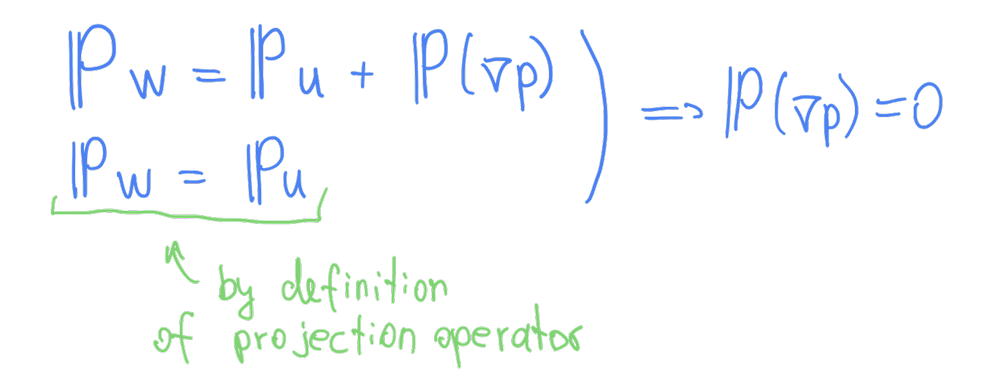 ℙw = ℙu + ℙ(∇p)
ℙw = ℙu
) => ℙ(∇p) = 0
by definition
of projection operator